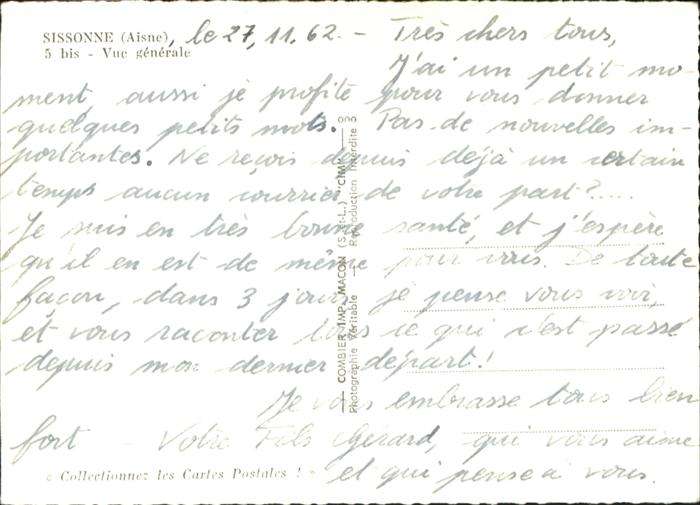 SISSONNE (Aisne), le 27, 11. 62. - Très chers tous,
5 bis - Vue générale
J'ai un petit mo-
ment, aussi je profite pour vous donner
quelques petits mots. Pas de nouvelles im-
portantes. Ne reçois depuis déjà un certain
temps aucun courrier de votre part ?.....
Je suis en très bonne santé, et j'espère
qu'il en est de même pour vous. De toute
façon, dans 3 jours je pense vous voir,
et vous raconter tous ce qui s'est passé
depuis mon dernier départ !
Je vous embrasse tous bien
fort - Votre Fils Gérard, qui vous aime
et qui pense à vous.
« Collectionnez les Cartes Postales ! »
COMBIER IMP. MACON (S.-et-L.) "CIM"
Photographie Véritable - Reproduction Interdite